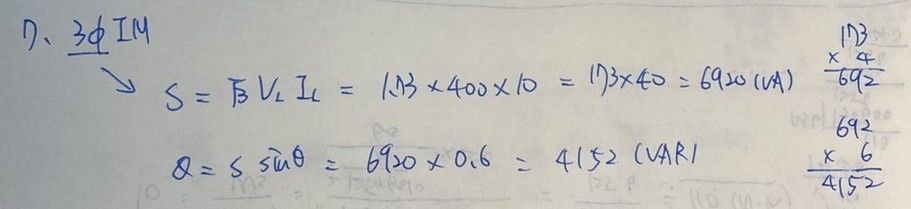 7、3ϕ IM
S = √3 V_L I_L = 1.73 × 400 × 10 = 173 × 40 = 6920 (VA)
Q = S sinθ = 6920 × 0.6 = 4152 (VAR)
173
× 4
692
692
× 6
4152